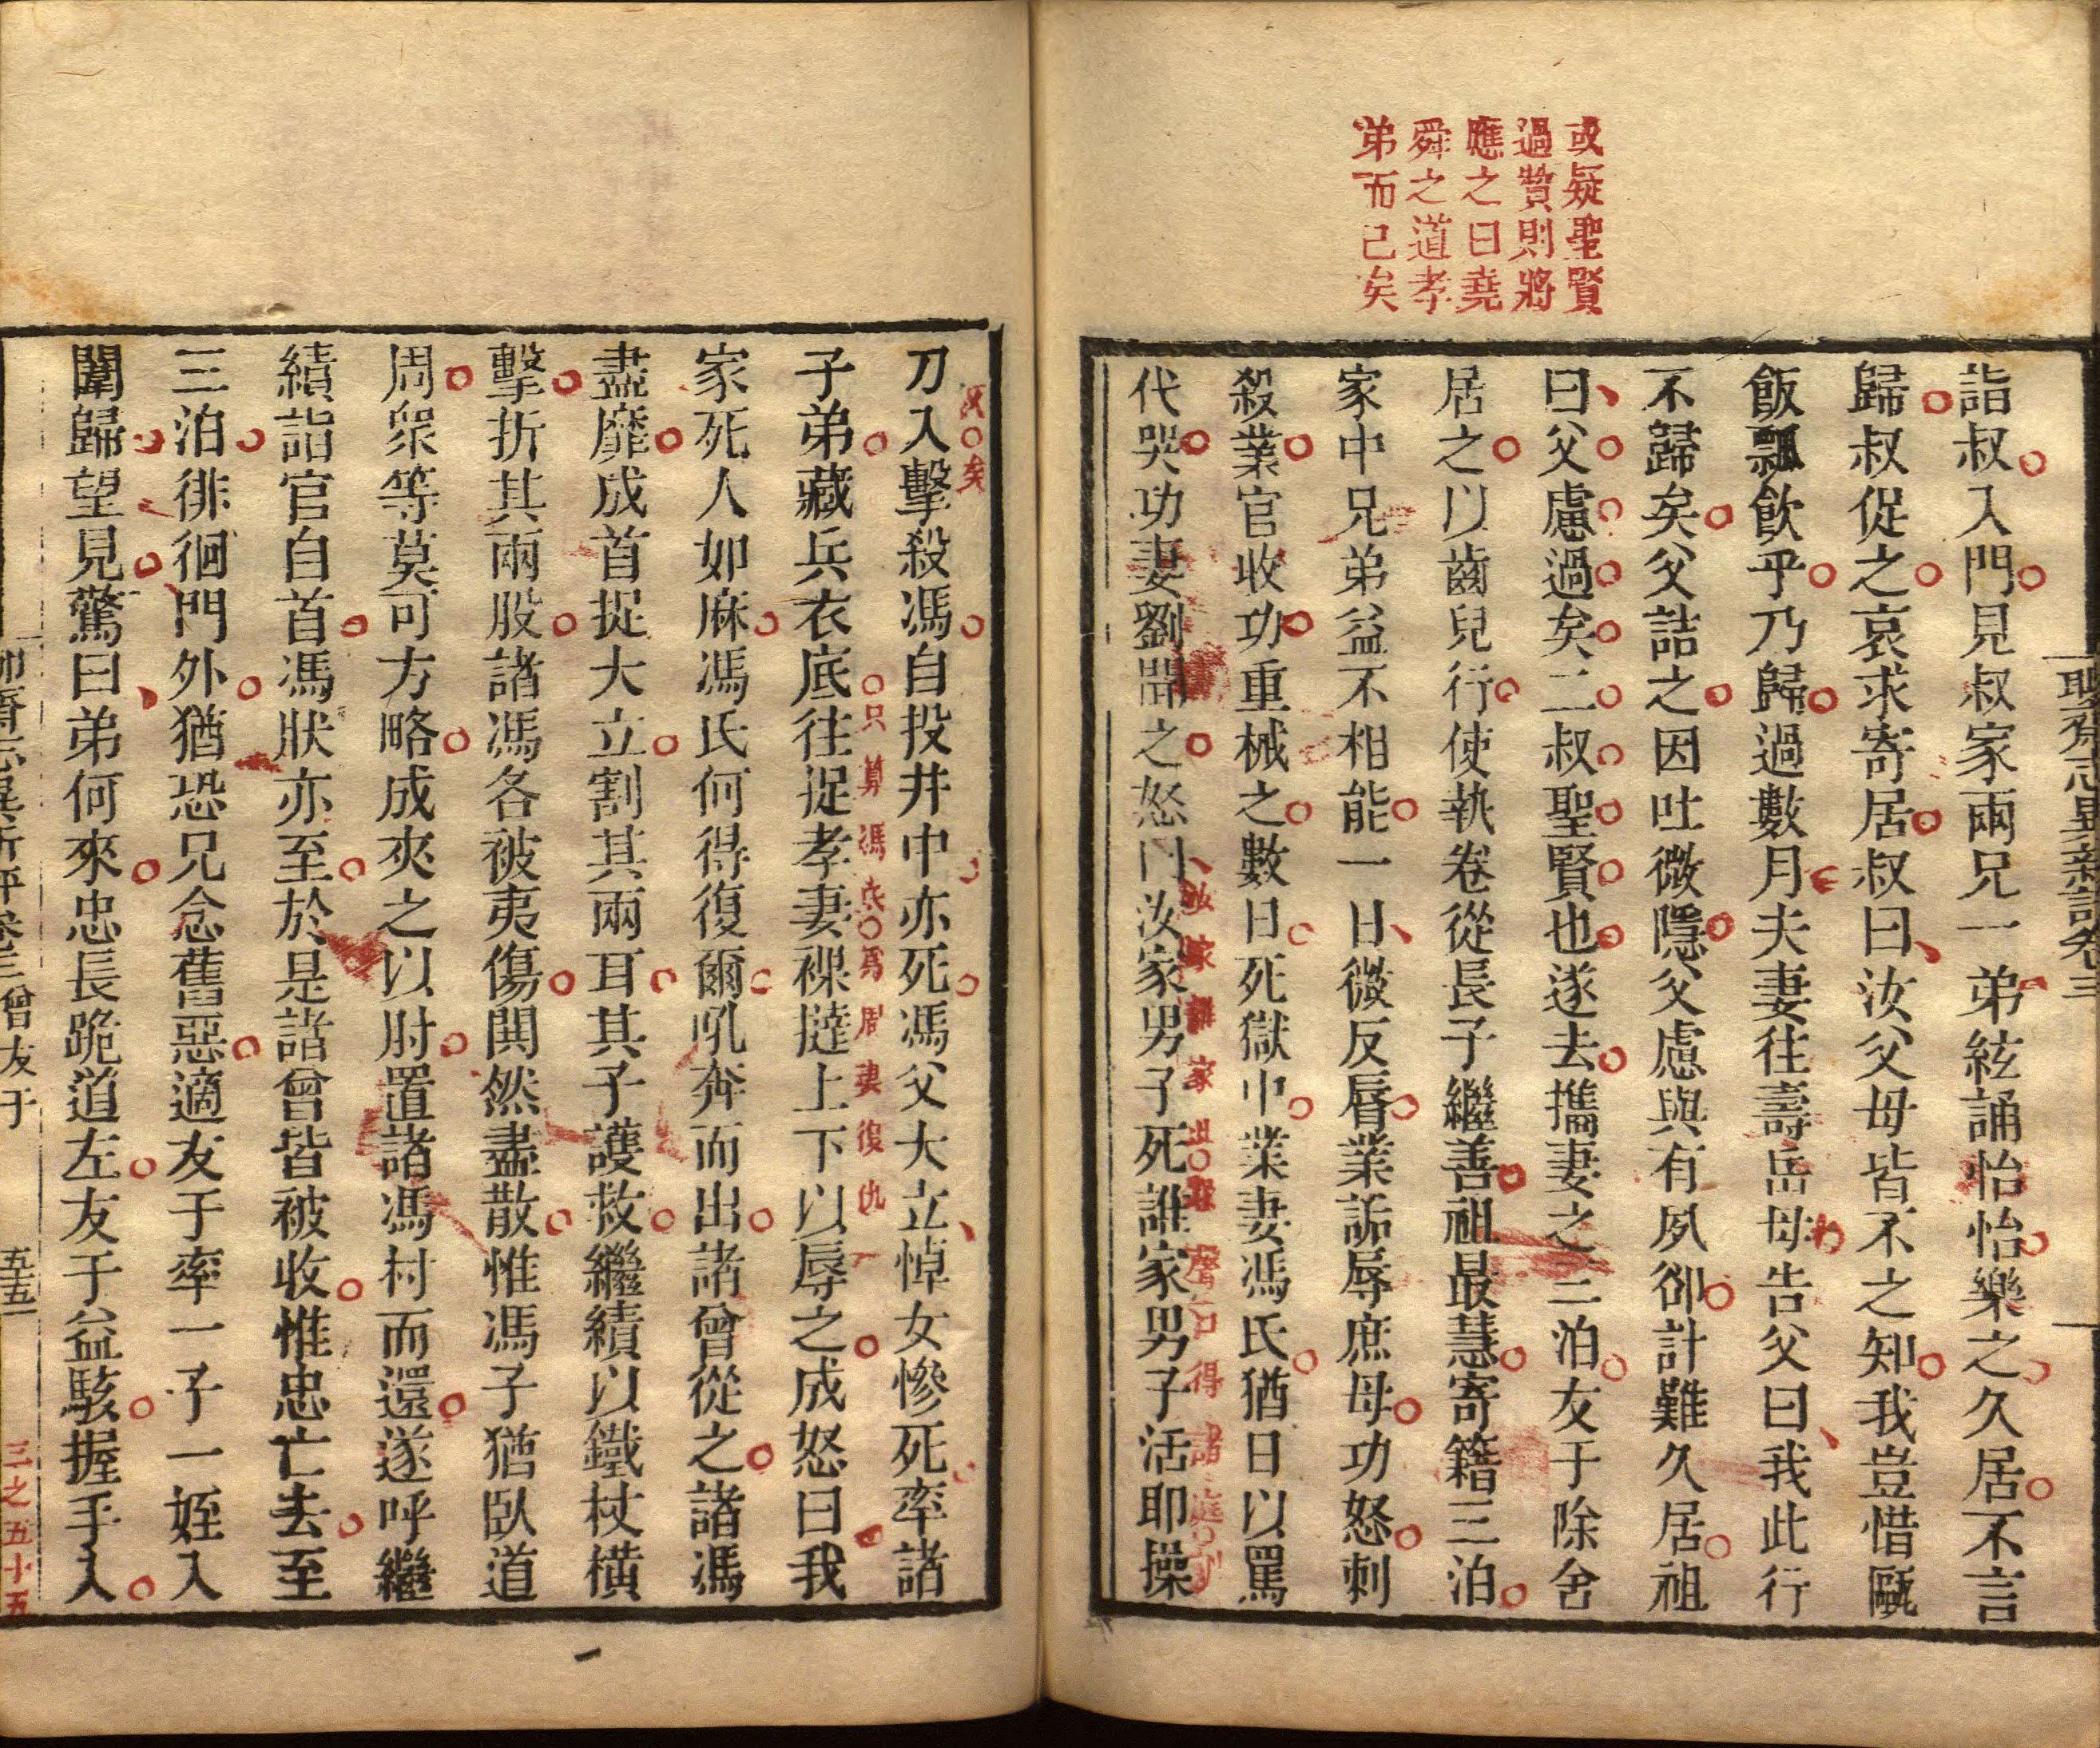 或疑聖賢
過贊則將
應之曰堯
舜之道孝
弟而已矣
聊齋志異新評卷三
詣叔入門見叔家兩兄一弟絃誦怡怡樂之久居不言
歸叔促之哀求寄居叔曰汝父母皆不之知我豈惜甌
飯瓢飲乎乃歸過數月夫妻往壽岳母告父曰我此行
不歸矣父詰之因吐微隱父慮與有夙卻計難久居祖
曰父慮過矣二叔聖賢也遂去攜妻之三泊友于除舍
居之以齒兒行使執卷從長子繼善祖最慧寄籍三泊
家中兄弟益不相能一日微反脣業詬辱庶母功怒刺
殺業官收功重械之數日死獄中業妻馮氏猶日以罵
代哭功妻劉聞之怒曰汝家男子死誰家男子活耶操
刀入擊殺馮自投井中亦死馮父大立悼女慘死率諸
子弟藏兵衣底往捉孝妻裸撻上下以辱之成怒曰我
只算馮氏爲周妻復仇
家死人如麻馮氏何得復爾吼奔而出諸曾從之諸馮
盡靡成首捉大立割其兩耳其子護救繼績以鐵杖橫
擊折其兩股諸馮各被夷傷閧然盡散惟馮子猶臥道
周眾等莫可方略成夾之以肘置諸馮村而還遂呼繼
績詣官自首馮狀亦至於是諸曾皆被收惟忠亡去至
三泊徘徊門外猶恐兄念舊惡適友于率一子一姪入
闈歸望見驚曰弟何來忠長跪道左友于益駭握手入
聊齋志異新評卷三 曾友于 五五
三之五十五